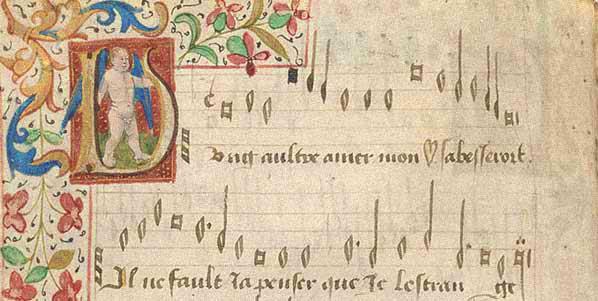 Dung aultre amer mon ♥ sabesseroit.
Il ne fault Ja penser que Je lestran ge